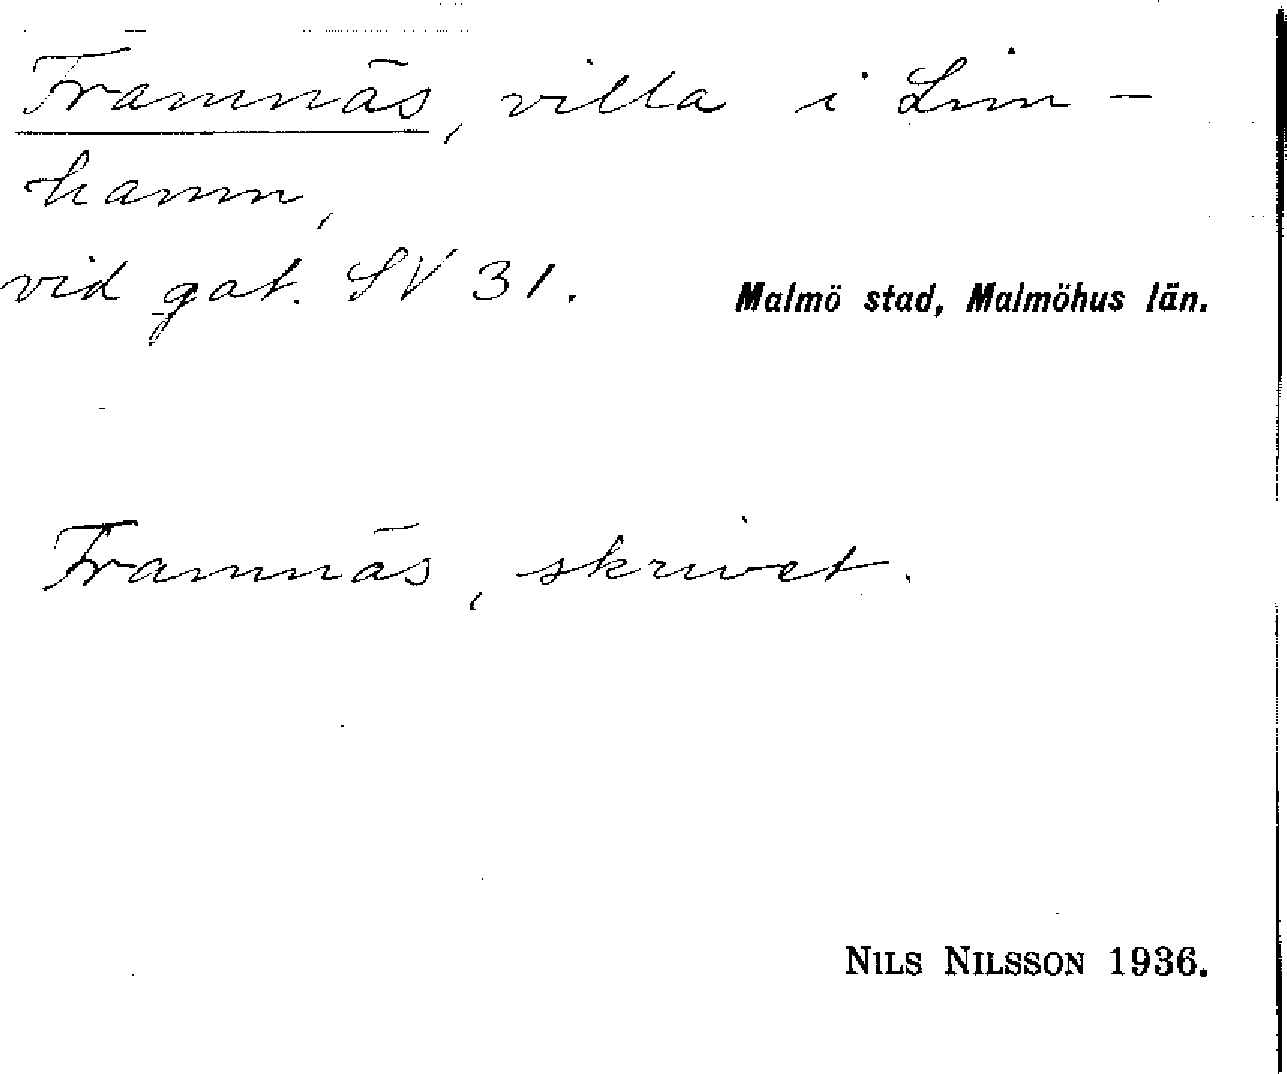 Framnäs, villa i Lim-
hamn,
vid gat. SV 31.
Malmö stad, Malmöhus län.
Framnäs, skrivet.
NILS NILSSON 1936.